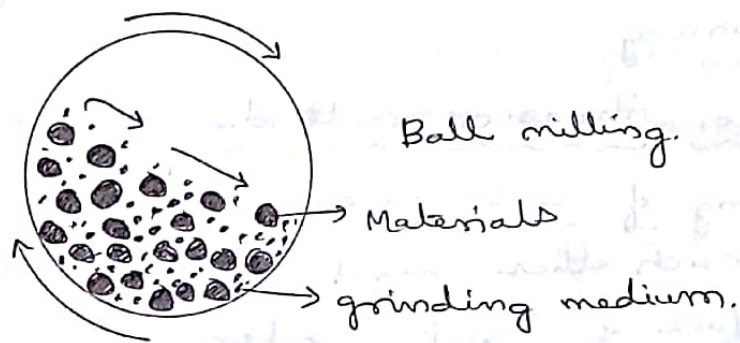 Ball milling.
Materials
grinding medium.